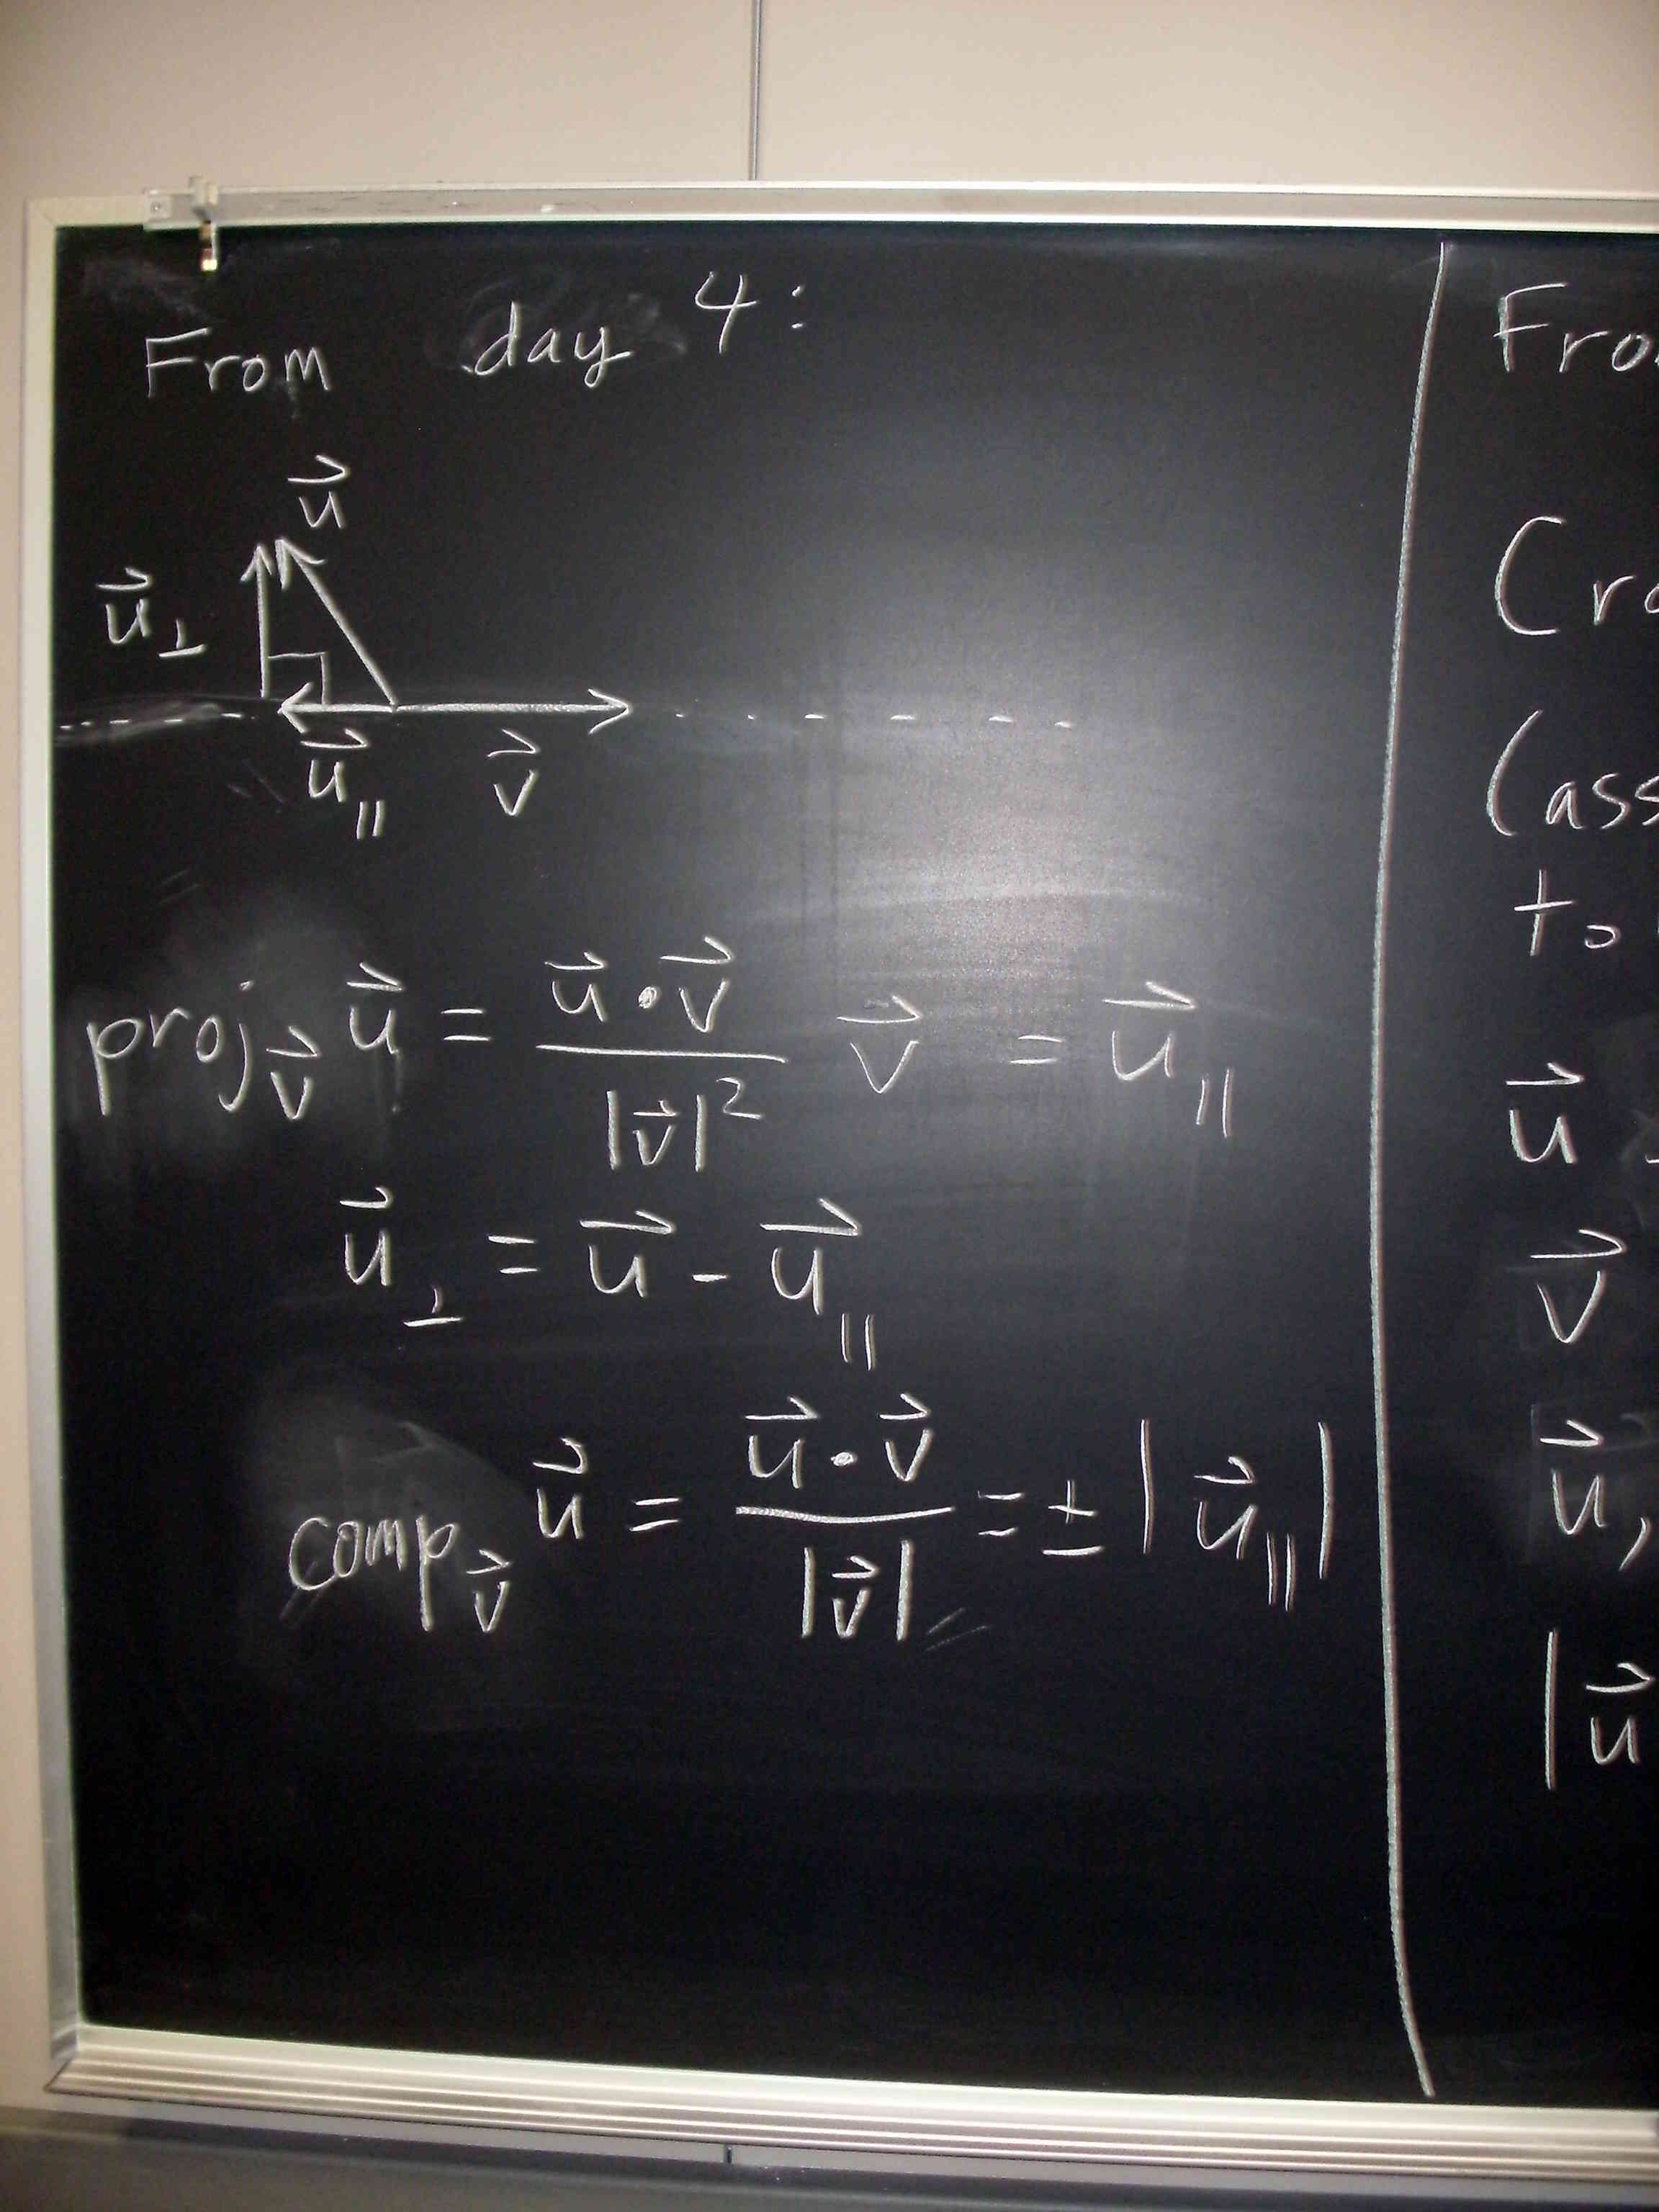 From day 4:
u⃗
u⃗⊥
u⃗∥ v⃗
proj_v⃗ u⃗ = (u⃗ • v⃗)/|v⃗|² v⃗ = u⃗∥
u⃗⊥ = u⃗ - u⃗∥
comp_v⃗ u⃗ = (u⃗ • v⃗)/|v⃗| = ± |u⃗∥|
Fro
Cro
(ass
to
u⃗
v⃗
u⃗,
|u⃗